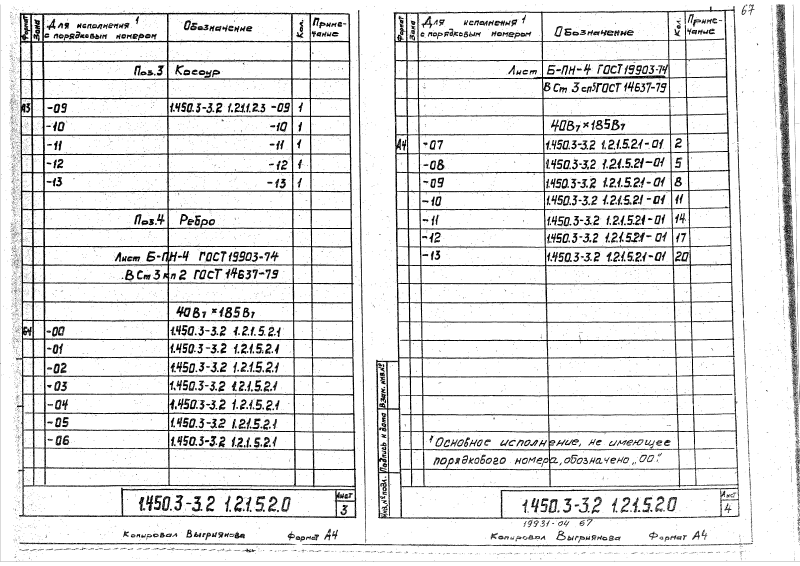 Формат
Зона
Для исполнения ¹
с порядковым номером
Обозначение
Кол.
Приме-
чание
Поз.3 Косоур
А3 -09 1.450.3-3.2 1.2.1.1.2.3 -09 1
-10 -10 1
-11 -11 1
-12 -12 1
-13 -13 1
Поз.4 Ребро
Лист Б-ПН-4 ГОСТ 19903-74
В Ст 3 кп 2 ГОСТ 14637-79
40В7 × 185В7
БЧ -00 1.450.3-3.2 1.2.1.5.2.1
-01 1.450.3-3.2 1.2.1.5.2.1
-02 1.450.3-3.2 1.2.1.5.2.1
-03 1.450.3-3.2 1.2.1.5.2.1
-04 1.450.3-3.2 1.2.1.5.2.1
-05 1.450.3-3.2 1.2.1.5.2.1
-06 1.450.3-3.2 1.2.1.5.2.1
1.450.3-3.2 1.2.1.5.2.0
Лист
3
Копировал Выгриянова Формат А4
67
Формат
Зона
Для исполнения ¹
с порядковым номером
Обозначение
Кол.
Приме-
чание
Лист Б-ПН-4 ГОСТ 19903-74
В Ст 3 сп5 ГОСТ 14637-79
40В7 × 185В7
А4 -07 1.450.3-3.2 1.2.1.5.2.1-01 2
-08 1.450.3-3.2 1.2.1.5.2.1-01 5
-09 1.450.3-3.2 1.2.1.5.2.1-01 8
-10 1.450.3-3.2 1.2.1.5.2.1-01 11
-11 1.450.3-3.2 1.2.1.5.2.1-01 14
-12 1.450.3-3.2 1.2.1.5.2.1-01 17
-13 1.450.3-3.2 1.2.1.5.2.1-01 20
¹ Основное исполнение, не имеющее
порядкового номера, обозначено „00".
Инв.№ подл. Подпись и дата Взам. инв.№
1.450.3-3.2 1.2.1.5.2.0
Лист
4
19931-04 67
Копировал Выгриянова Формат А4